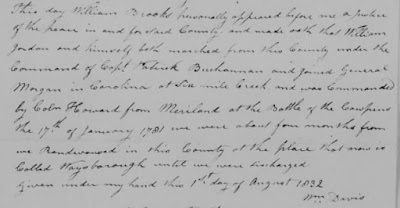 This day William Brooks personally appeared before me a justice
of the peace in and for said County and made oath that William
Jordan and himself both marched from this County under the
Command of Capt Patrick Buchannan and joined General
Morgan in Carolina at Six mile Creek and was Commanded
by Coln Howard from Meriland at the Battle of the Cowpens
the 17th of January 1781 we were about four months from
we Randevoused in this County at the place that now is
Called Waysborough until we were discharged
Given under my hand this 1st day of August 1832
Wm Davis